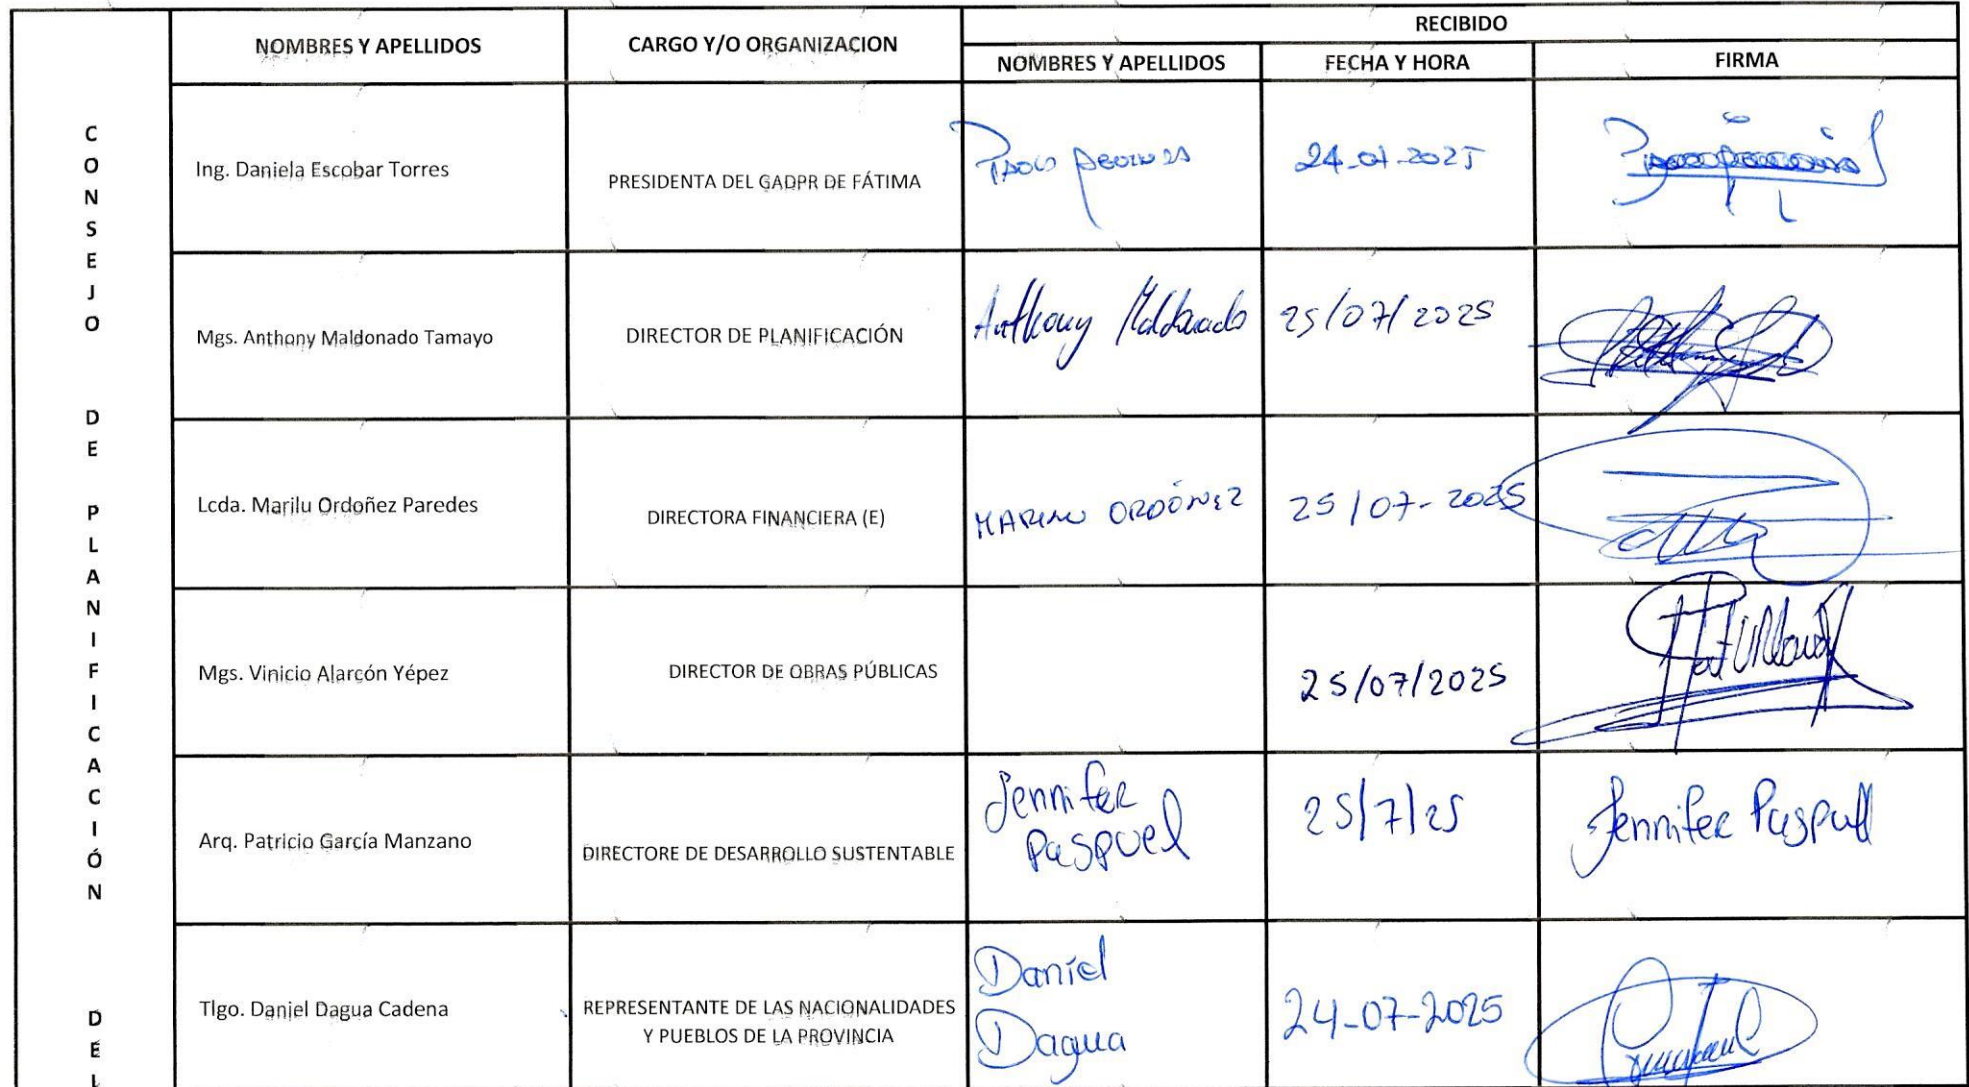 CONSEJO DE PLANIFICACIÓN DEL
NOMBRES Y APELLIDOS
CARGO Y/O ORGANIZACION
RECIBIDO
NOMBRES Y APELLIDOS
FECHA Y HORA
FIRMA
Ing. Daniela Escobar Torres
PRESIDENTA DEL GADPR DE FÁTIMA
24-07-2025
Mgs. Anthony Maldonado Tamayo
DIRECTOR DE PLANIFICACIÓN
Anthony Maldonado
25/07/2025
Lcda. Marilu Ordoñez Paredes
DIRECTORA FINANCIERA (E)
MARILU ORDÓÑEZ
25/07-2025
Mgs. Vinicio Alarcón Yépez
DIRECTOR DE OBRAS PÚBLICAS
25/07/2025
Arq. Patricio García Manzano
DIRECTORE DE DESARROLLO SUSTENTABLE
Jennifer
Paspuel
25/7/25
Jennifer Paspuel
Tlgo. Daniel Dagua Cadena
REPRESENTANTE DE LAS NACIONALIDADES
Y PUEBLOS DE LA PROVINCIA
Daniel
Dagua
24-07-2025